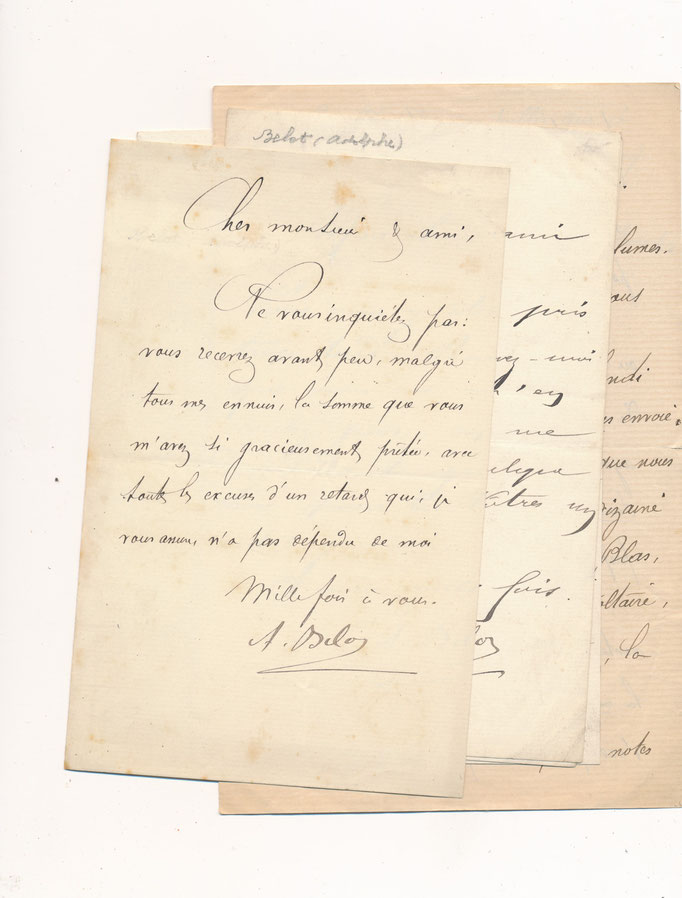 Belot (Adolphe)
Cher monsieur & ami,
Ne vous inquiétez pas:
vous recevrez avant peu, malgré
tous mes ennuis, la somme que vous
m'avez si gracieusement prêtée, avec
toutes les excuses d'un retard qui, je
vous assure, n'a pas dépendu de moi
Mille fois à vous.
A. Belot
ami
pris
-moi
en
me
fois.
lumes.
ous
ndi
envoie.
que nous
izaine
Blas,
oltaire,
, la
notes